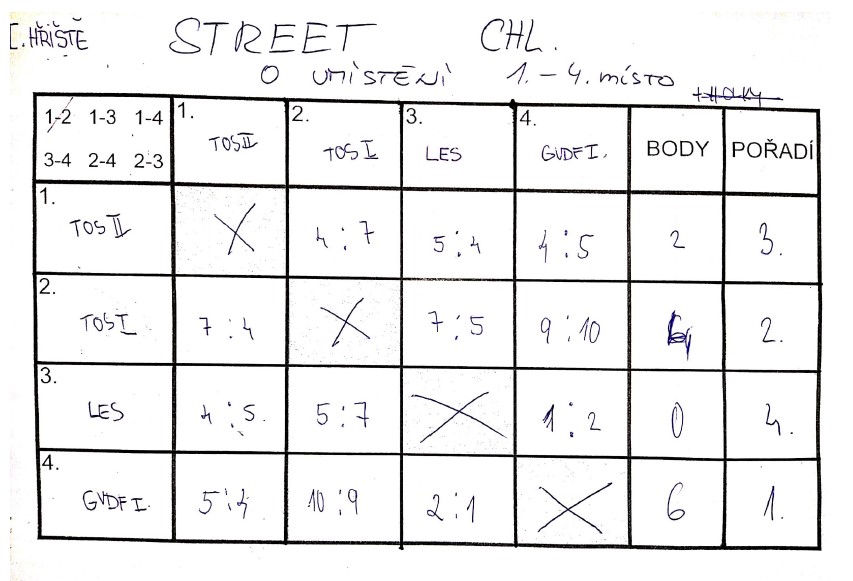 I. HŘIŠTĚ STREET CHL.
O UMÍSTĚNÍ 1. – 4. místo
1-2 1-3 1-4 1. TOS II 2. TOS I 3. LES 4. GVDF I. BODY POŘADÍ
3-4 2-4 2-3
1. TOS II 4 : 7 5 : 4 4 : 5 2 3.
2. TOS I 7 : 4 7 : 5 9 : 10 4 2.
3. LES 4 : 5. 5 : 7 1 : 2 0 4.
4. GVDF I. 5 : 4 10 : 9 2 : 1 6 1.